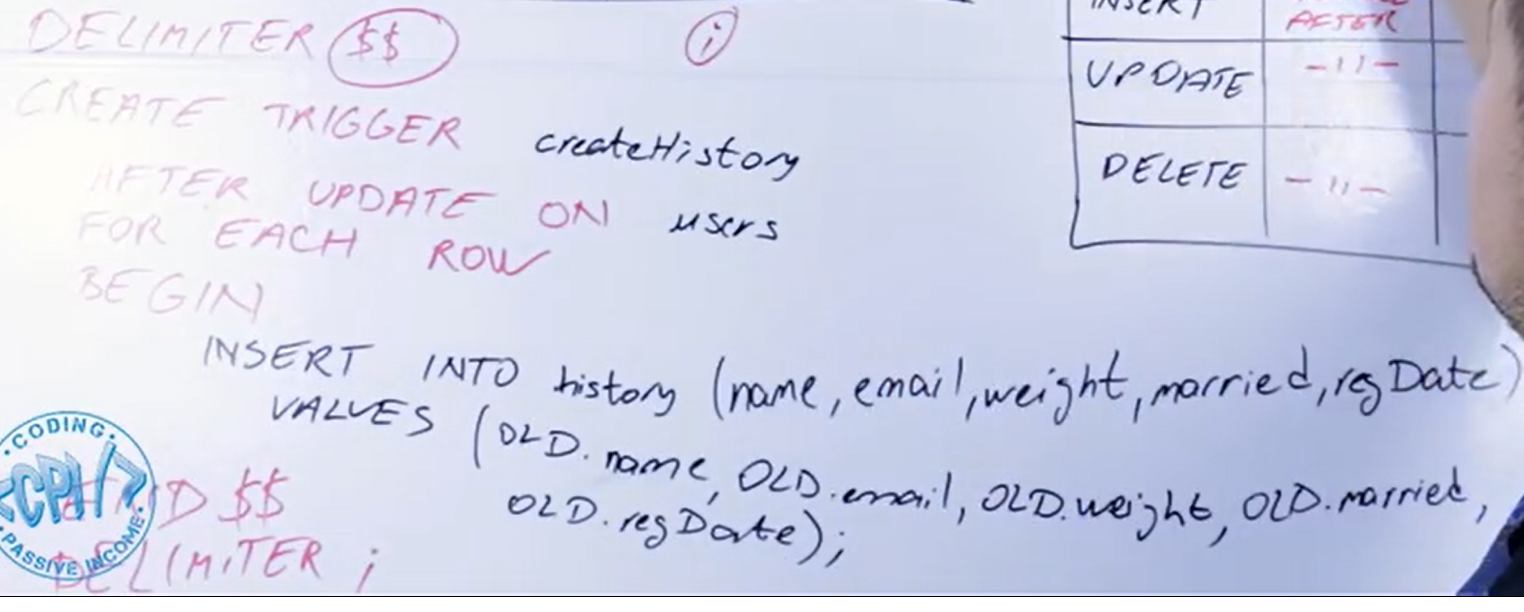 DELIMITER $$ ;
CREATE TRIGGER createHistory
AFTER UPDATE ON users
FOR EACH ROW
BEGIN
INSERT INTO history (name, email, weight, married, regDate)
VALUES (OLD.name, OLD.email, OLD.weight, OLD.married,
OLD.regDate);
END $$
DELIMITER ;
INSERT AFTER
UPDATE -11-
DELETE -11-
CODING
<CPI/>
PASSIVE INCOME